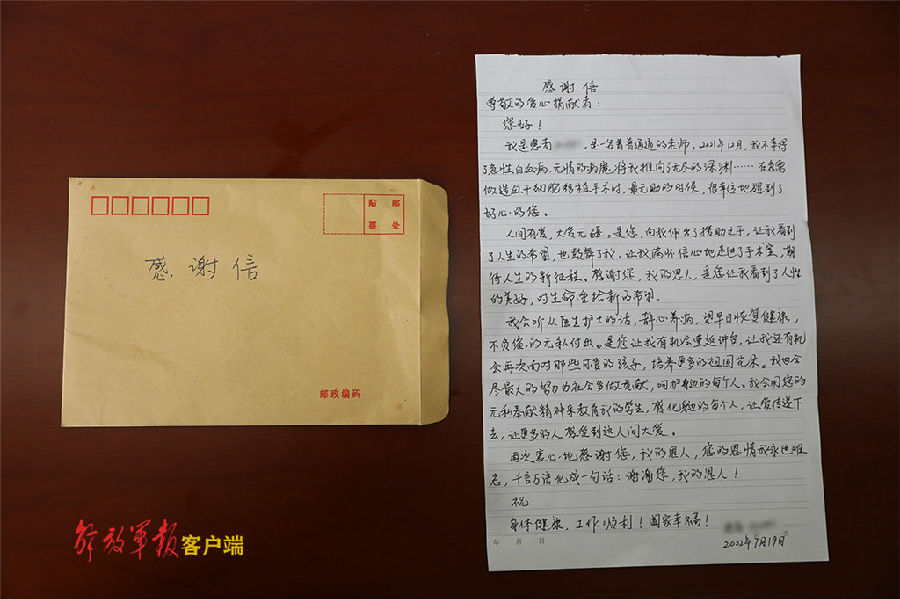 贴 邮
票 处
感谢信
邮政编码
感谢信
尊敬的爱心捐献者：
您好！
我是患者 ，是一名普普通通的老师，2021年12月，我不幸得
了急性白血病，无情的病魔将我推向了无尽的深渊……在我需
做造血干细胞移植手术时，最无助的时候，很幸运地遇到了
好心的您。
人间有爱，大爱无疆。是您，向我伸出了援助之手，让我看到
了人生的希望，也鼓舞了我，让我满怀信心地走进了手术室，期
待人生的新征程。感谢您，我的恩人，是您让我看到了人性
的美好，对生命重拾新的希望。
我会听从医生护士的话，静心养病，望早日恢复健康，
不负您的无私付出。是您让我有机会重返讲台，让我还有机
会再次面对那些可爱的孩子，培养更多的祖国花朵。我也会
尽最大的努力为社会多做贡献，呵护身边的每个人，我会用您的
无私奉献精神来教育我的学生，感化身边的每个人，让爱传递下
去，让更多的人感受到这人间大爱。
再次衷心地感谢您，我的恩人，您的恩情我永世难
忘，千言万语化成一句话：谢谢您，我的恩人！
祝
身体健康，工作顺利！阖家幸福！
年 月 日
2022年7月19日
解放军报客户端